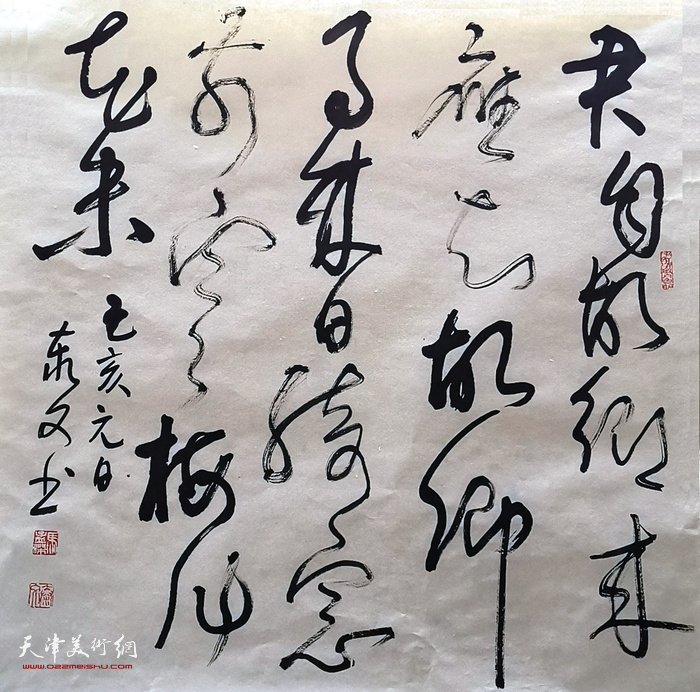 君自故鄉来
應知故鄉
事来日绮窗
前寒梅著
花未
己亥元日
文书
天津美術網
www.022meishu.com